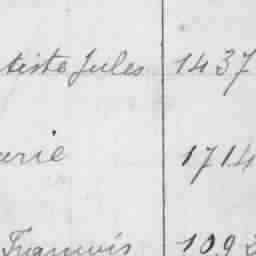 tiste Jules 1437
arie 1714
François 1092